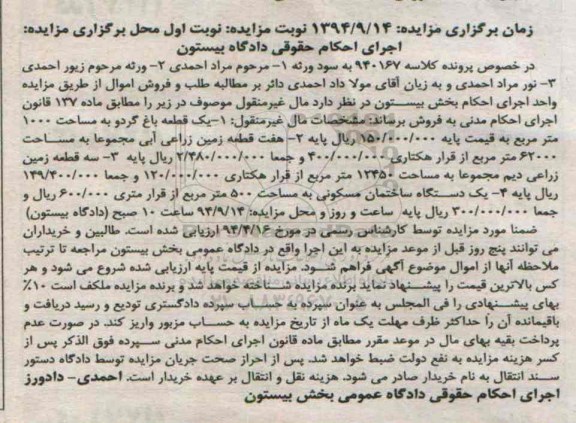 زمان برگزاری مزایده: ۱۳۹۴/۹/۱۴ نوبت مزایده: نوبت اول محل برگزاری مزایده:
اجرای احکام حقوقی دادگاه بیستون
در خصوص پرونده کلاسه ۹۴۰۱۶۷ به سود ورثه ۱- مرحوم مراد احمدی ۲- ورثه مرحوم زیور احمدی
۳- نور مراد احمدی و به زیان آقای مولا داد احمدی دائر بر مطالبه طلب و فروش اموال از طریق مزایده
واحد اجرای احکام بخش بیستون در نظر دارد مال غیرمنقول موصوف در زیر را مطابق ماده ۱۳۷ قانون
اجرای احکام مدنی به فروش برساند: مشخصات مال غیرمنقول: ۱-یک قطعه باغ گردو به مساحت ۱۰۰۰
متر مربع به قیمت پایه ۱۵۰/۰۰۰/۰۰۰ ریال پایه ۲- هفت قطعه زمین زراعی آبی مجموعا به مساحت
۶۲۰۰۰ متر مربع از قرار هکتاری ۴۰۰/۰۰۰/۰۰۰ و جمعا ۲/۴۸۰/۰۰۰/۰۰۰ ریال پایه ۳- سه قطعه زمین
زراعی دیم مجموعا به مساحت ۱۲۴۵۰ متر مربع از قرار هکتاری ۱۲۰/۰۰۰/۰۰۰ و جمعا ۱۴۹/۴۰۰/۰۰۰
ریال پایه ۴- یک دستگاه ساختمان مسکونی به مساحت ۵۰۰ متر مربع از قرار متری ۶۰۰/۰۰۰ ریال و
جمعا ۳۰۰/۰۰۰/۰۰۰ ریال پایه ساعت و روز و محل مزایده: ۹۴/۹/۱۴ ساعت ۱۰ صبح (دادگاه بیستون)
ضمنا مورد مزایده توسط کارشناس رسمی در مورخ ۹۴/۴/۱۶ ارزیابی شده است. طالبین و خریداران
می توانند پنج روز قبل از موعد مزایده به این اجرا واقع در دادگاه عمومی بخش بیستون مراجعه تا ترتیب
ملاحظه آنها از اموال موضوع آگهی فراهم شود. مزایده از قیمت پایه ارزیابی شده شروع می شود و هر
کس بالاترین قیمت را پیشنهاد نماید برنده مزایده شناخته خواهد شد و برنده مزایده ملکف است ۱۰٪
بهای پیشنهادی را فی المجلس به عنوان سپرده به حساب سپرده دادگستری تودیع و رسید دریافت و
باقیمانده آن را حداکثر ظرف مهلت یک ماه از تاریخ مزایده به حساب مزبور واریز کند. در صورت عدم
پرداخت بقیه بهای مال در موعد مقرر مطابق ماده قانون اجرای احکام مدنی سپرده فوق الذکر پس از
کسر هزینه مزایده به نفع دولت ضبط خواهد شد. پس از احراز صحت جریان مزایده توسط دادگاه دستور
سند انتقال به نام خریدار صادر می شود. هزینه نقل و انتقال بر عهده خریدار است. احمدی- دادورز
اجرای احکام حقوقی دادگاه عمومی بخش بیستون